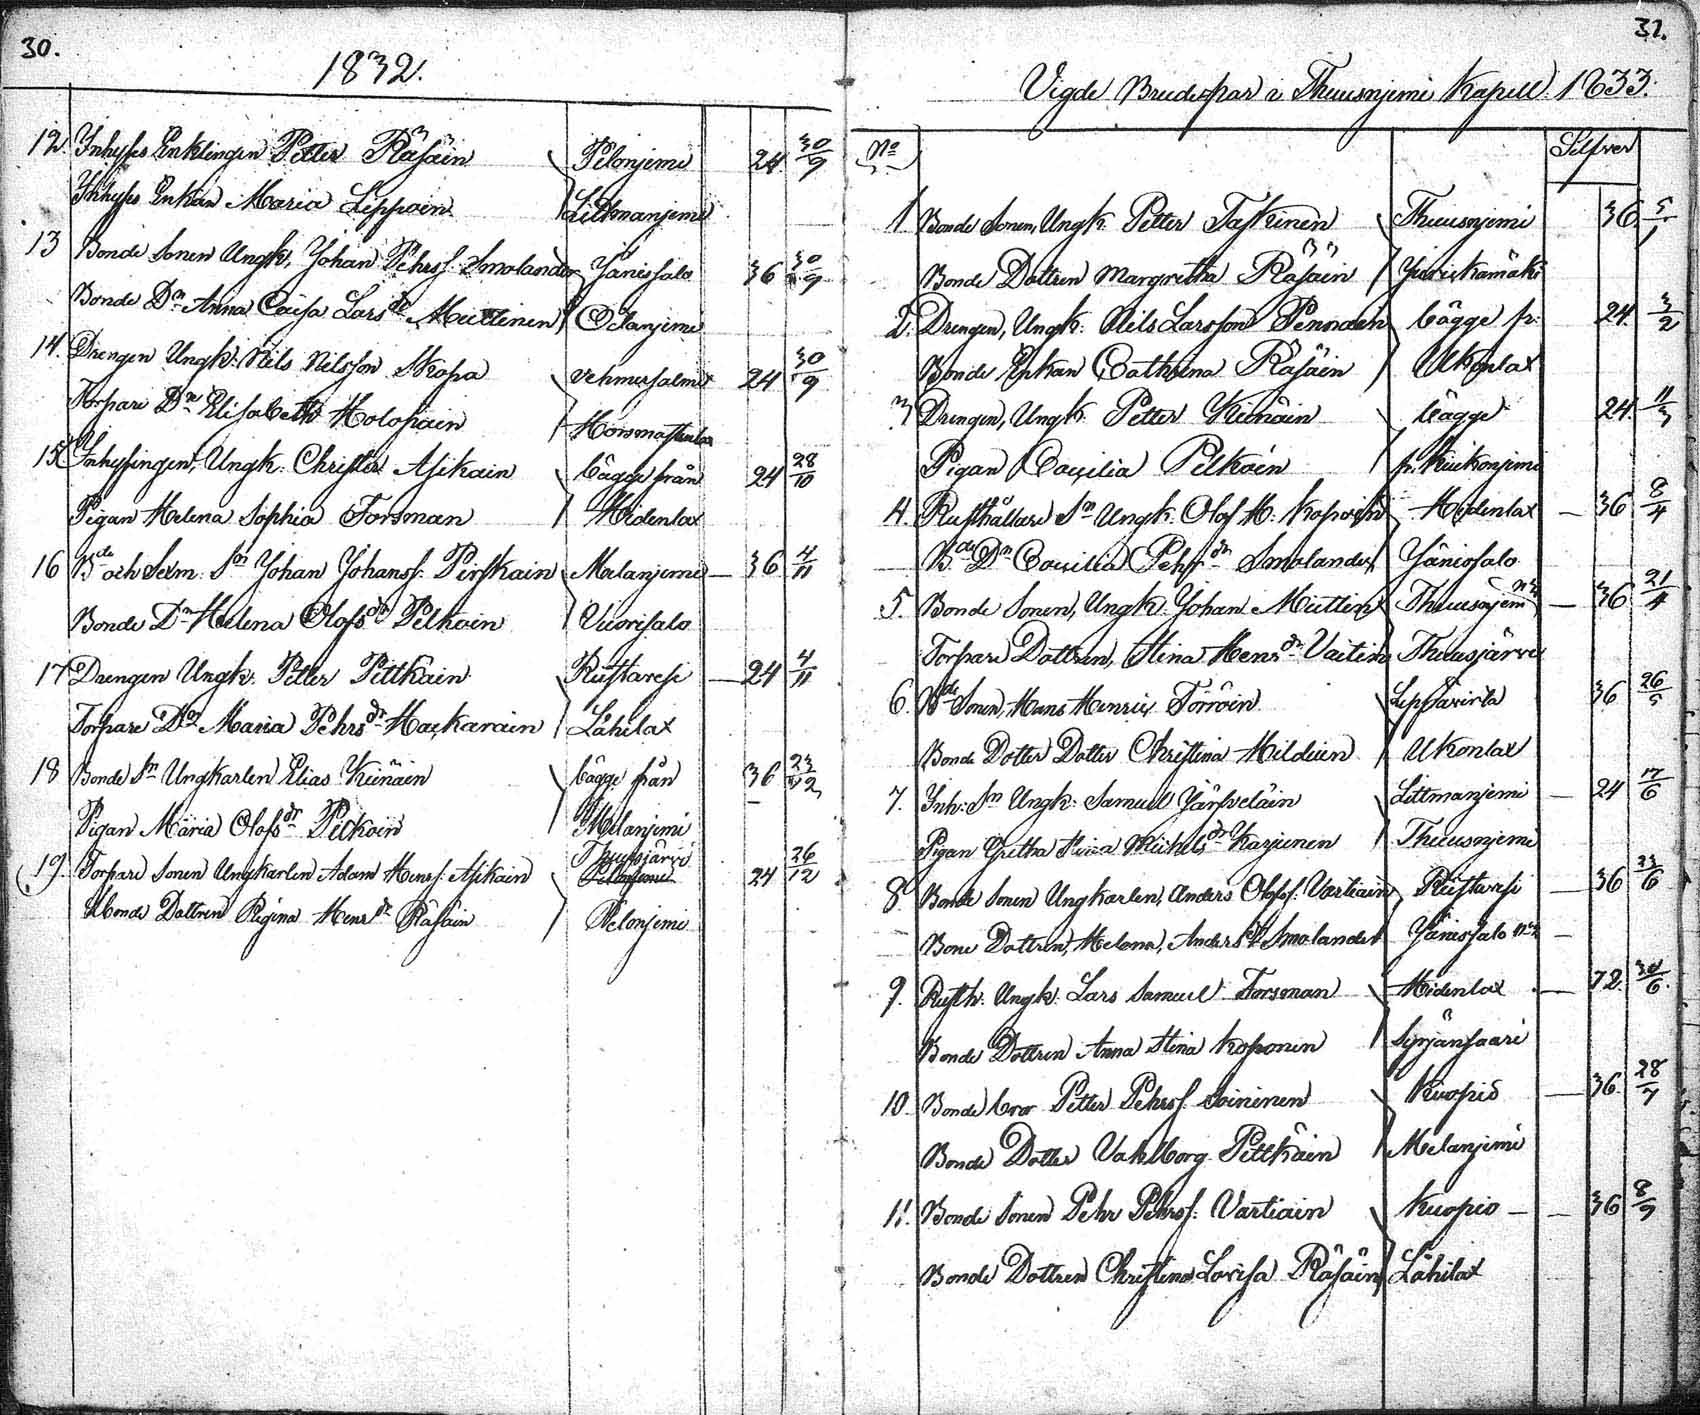 30.
1832.
12. Inhyses Enklingen Petter Räsäin Pelonjemi 24 30/9
Inhyses Enkan Maria Lippoin Littmanjemi
13 Bonde Sonen Ungk. Johan Pehrss. Smolander Jänissalo 36 30/9
Bonde Dn Anna Caisa Larsdr Muttinen Oelanjemi
14. Drengen Ungk. Nils Nilsson Skopa Vehmersalmi 24 30/9
Torpare Dn Elisabeth Holopain
15 Inhysingen, Ungk. Christer Asikain bägge från 24 28/10
Pigan Helena Sophia Forsman Hidenlax
16 Bde och Sexm. Sn Johan Johanss. Pirskain Melanjemi 36 4/11
Bonde Dn Helena Olofsdr Pelkoin Vuorisalo
17 Drengen Ungk. Petter Pittkäin Rustavesi 24 4/11
Torpare Dn Maria Pehrsdr Hackarain Lähilax
18 Bonde Sn Ungkarlen Elias Kiinäin bägge från 36 23/12
Pigan Maria Olofsdr Pelkoin Melanjemi
19. Torpare Sonen Ungkarlen Adam Henrs. Asikain Thuusjärvi Pelonjemi 24 26/12
Bonde Dottren Regina Henrsdr Räsäin Pelonjemi
31.
Vigde Brudepar i Thuusnjemi Kapell 1833.
No Silfver
1 Bonde Sonen, Ungk. Petter Taskinen Thuusnjemi 36 5/1
Bonde Dottren Margretha Räsäin
2. Drengen, Ungk. Nils Larsson Pennaen bägge fr. 24 3/2
Bonde Enkan Cathrina Räsäin Ukonlax
3 Drengen, Ungk. Petter Kiinäin bägge 24 11/3
Pigan Caecilia Pelkoin fr. Kuikonjemi
4. Rusthållare Sn Ungk. Olof H. Kopoin Hidenlax 36 8/4
Bde Dn Caecilia Pehrsdr Smolander Jänissalo
5. Bonde Sonen, Ungk. Johan Muttin Thuusnjemi n:3 36 21/4
Torpare Dottren, Stina Henrsdr Vaitin Thuusjärvi
6. Bde Sonen, Hans Henric Törröin Leppävirta 36 26/5
Bonde Dotter Dotter Christina Hilduin Ukonlax
7. Inh. Sn Ungk. Samuel Järfveläin Littmanjemi 24 17/6
Pigan Gretha Stina Michelsdr Karjunen Thuusnjemi
8 Bonde Sonen Ungkarlen, Anders Olofss. Vartiain Rustavesi 36 23/6
Bone Dottren, Helena, Andersdr Smolander Jänissalo No 2
9. Rusth. Ungk. Lars Samuel Forsman Hidenlax 72 30/6
Bonde Dottren Anna Stina Koponen Syrjänsaari
10. Bonde bror Petter Pehrss. Soininen Kuopio 36. 28/7
Bonde Dotter Vahlborg Pittkäin Melanjemi
11. Bonde Sonen Pehr Pehrss. Vartiain Kuopio 36 8/9
Bonde Dottren Christina Lovisa Räsäin Lähilax